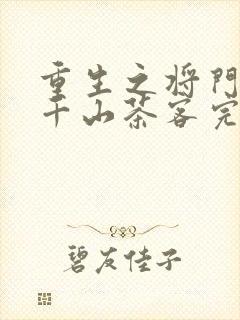 重生之将門
千山茶客完
碧友佳子